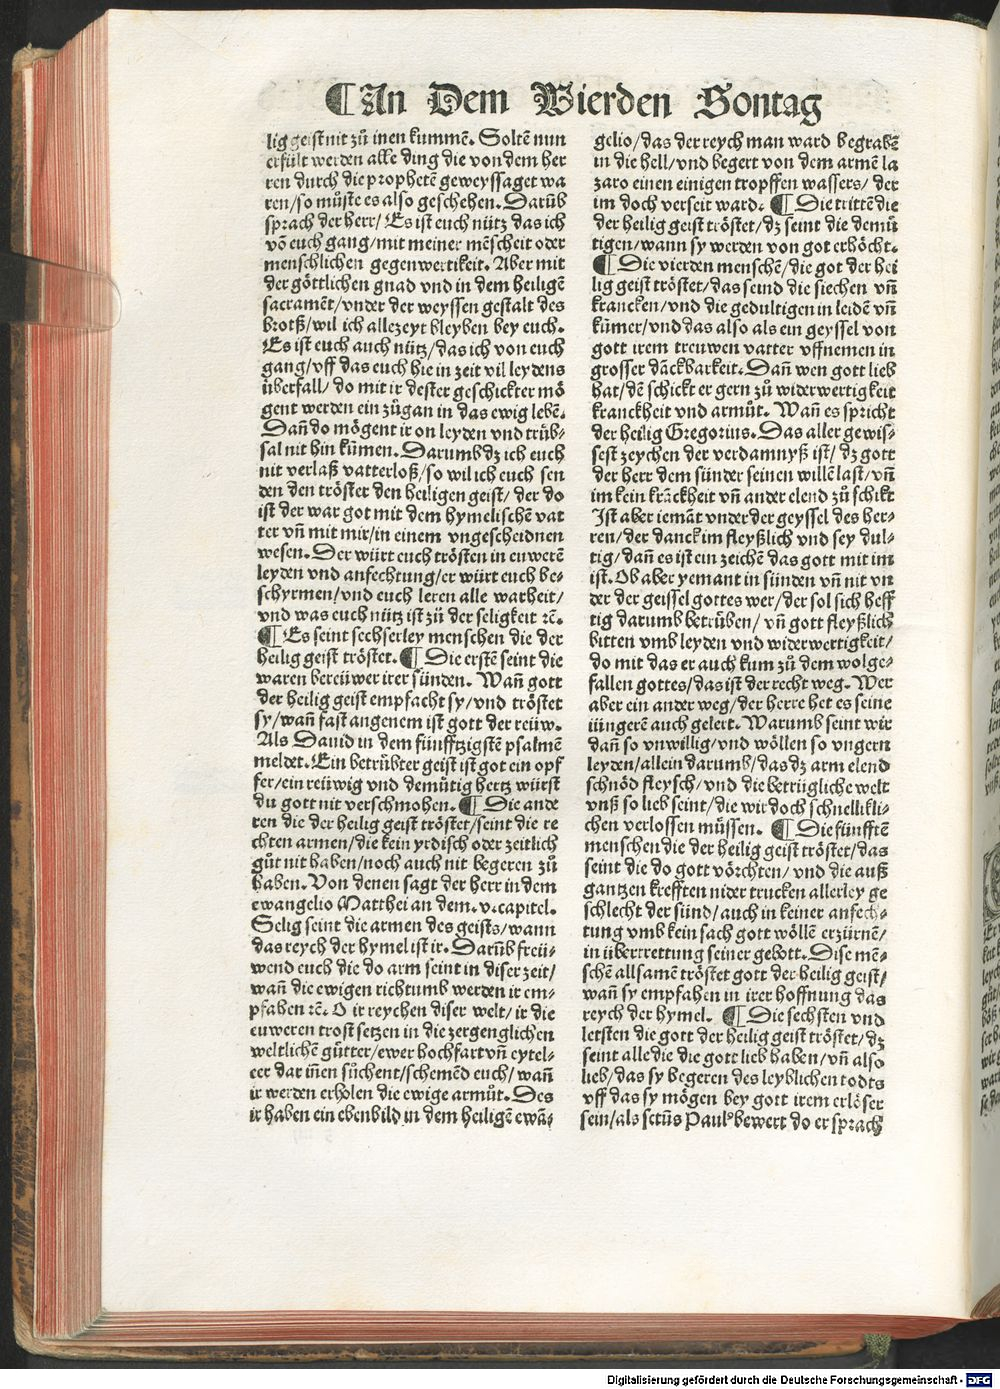 ¶An Dem Vierden Sontag
lig geist nit zů inen kummē. Soltē nun
erfült werden alle ding die von dem her
ren durch die prophetē geweyssaget wa
ren/so můste es also geschehen. Darūb
sprach der herr/ Es ist euch nütz das ich
vō euch gang/mit meiner mēscheit oder
menschlichen gegenwertikeit. Aber mit
der göttlichen gnad vnd in dem heiligē
sacramēt/vnder der weyssen gestalt des
brotß/wil ich allezeyt bleyben bey euch.
Es ist euch auch nütz/das ich von euch
gang/vff das euch hie in zeit vil leydens
überfall/do mit ir dester geschickter mö
gent werden ein zůgan in das ewig lebē.
Dañ do mögent ir on leyden vnd trüb⸗
sal nit hin kūmen. Darumb dz ich euch
nit verlaß vatterloß/so wil ich euch sen
den den tröster den heiligen geist/der do
ist der war got mit dem hymelischē vat
ter vñ mit mir/in einem vngescheidnen
wesen. Der würt euch trösten in euwerē
leyden vnd anfechtung/er würt euch be⸗
schyrmen/vnd euch leren alle warheit/
vnd was euch nütz ist zů der seligkeit ⁊c̄.
¶ Es seint sechserley menschen die der
heilig geist tröstet. ¶ Die erstē seint die
waren bereüwer irer sünden. Wañ gott
der heilig geist empfacht sy/vnd tröstet
sy/wañ fast angenem ist gott der reüw.
Als Dauid in dem fünfftzigstē psalmē
meldet. Ein betrübter geist ist got ein opf
fer/ein reüwig vnd demütig hertz würst
du gott nit verschmohen. ¶ Die ande
ren die der heilig geist tröstet/seint die re
chten armen/die kein yrdisch oder zeitlich
gůt nit haben/noch auch nit begeren zů
haben. Von denen sagt der herr in dem
ewangelio Matthei an dem .v. capitel.
Selig seint die armen des geists/wann
das reych der hymel ist ir. Darūb freü⸗
wend euch die do arm seint in diser zeit/
wañ die ewigen richtumb werden ir em⸗
pfahen ⁊c̄. O ir reychen diser welt/ir die
euweren trost setzen in die zergenglichen
weltlichē gütter/ewer hochfart vñ eytel⸗
eer dar iñen sůchent/schemēd euch/wañ
ir werden erholen die ewige armůt. Des
ir haben ein ebenbild in dem heiligē ewā⸗
gelio/das der reych man ward begrabē
in die hell/vnd begert von dem armē la
zaro einen einigen tropffen wassers/der
im doch verseit ward. ¶ Die trittē die
der heilig geist tröstet/dz seint die demü
tigen/wann sy werden von got erhöcht.
¶ Die vierden menschē/die got der hei
lig geist tröstet/das seind die siechen vñ
krancken/vnd die gedultigen in leidē vñ
kūmer/vnd das also als ein geyssel von
gott irem treuwen vatter vffnemen in
grosser dāckbarkeit. Dañ wen gott lieb
hat/dē schickt er gern zů widerwertigkeit
kranckheit vnd armůt. Wañ es spricht
der heilig Gregorius. Das aller gewis⸗
sest zeychen der verdamnyß ist/dz gott
der herr dem sünder seinen willē last/vñ
im kein krāckheit vñ ander elend zů schikt
Ist aber iemāt vnder der geyssel des her⸗
ren/der danck im fleyßlich vnd sey dul⸗
tig/dañ es ist ein zeichē das gott mit im
ist. Ob aber yemant in sünden vñ nit vn
der der geissel gottes wer/der sol sich heff
tig darumb betrüben/vñ gott fleyßlich
bitten vmb leyden vnd widerwertigkeit/
do mit das er auch kum zů dem wolge⸗
fallen gottes/das ist der recht weg. Wer
aber ein ander weg/der herre het es seine
iüngerē auch gelert. Warumb seint wir
dañ so vnwillig/vnd wöllen so vngern
leyden/allein darumb/das dz arm elend
schnöd fleysch/vnd die betrügliche welt
vnß so lieb seint/die wir doch schnellikli⸗
chen verlossen müssen. ¶ Die fünfftē
menschen die der heilig geist tröstet/das
seint die do gott vörchten/vnd die auß
gantzen krefften nider trucken allerley ge
schlecht der sünd/auch in keiner anfech⸗
tung vmb kein sach gott wöllē erzürnē/
in überrettung seiner gebott. Dise mē⸗
schē allsamē tröstet gott der heilig geist/
wañ sy empfahen in irer hoffnung das
reych der hymel. ¶ Die sechsten vnd
letsten die gott der heilig geist tröstet/dz
seint alle die die gott lieb haben/vñ also
lieb/das sy begeren des leyblichen todts
vff das sy mögen bey gott irem erlöser
sein/als sctūs Paulꝰ bewert do er sprach
Digitalisierung gefördert durch die Deutsche Forschungsgemeinschaft - DFG